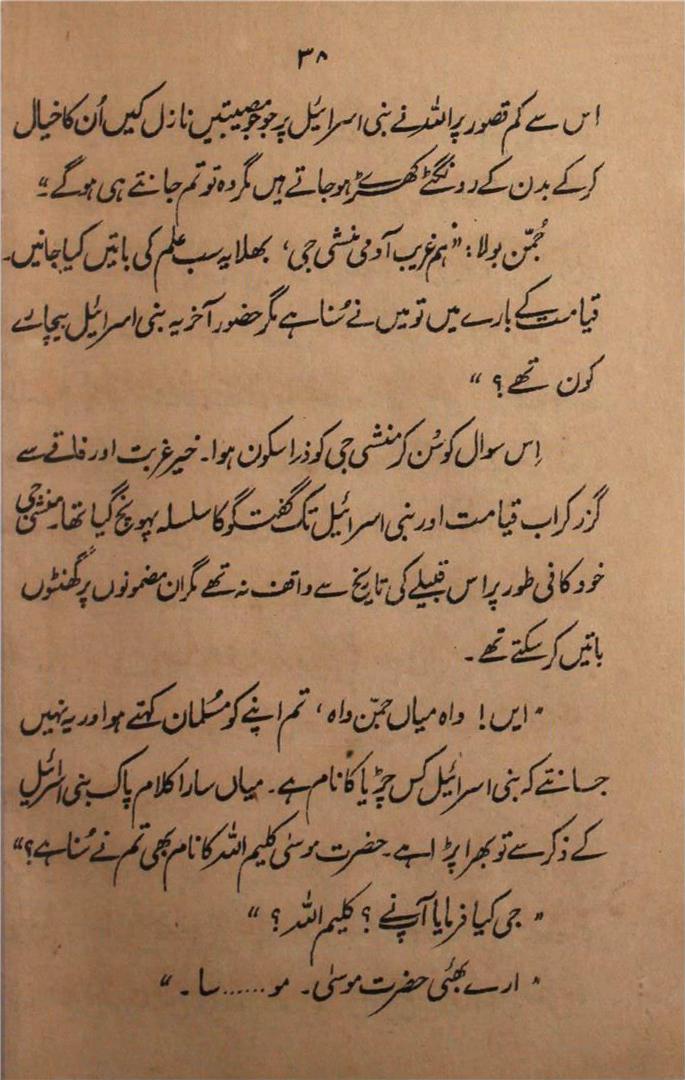 ۳۸
اس سے کم قصور پر اللہ نے بنی اسرائیل پر جو جو مصیبتیں نازل کیں اُن کا خیال
کر کے بدن کے رونگٹے کھڑے ہو جاتے ہیں مگر وہ تو تم جانتے ہی ہو گے۔“
جُمّن بولا: ”ہم غریب آدمی منشی جی، بھلا یہ سب علم کی باتیں کیا جانیں۔
قیامت کے بارے میں تو میں نے سُنا ہے مگر حضور آخر یہ بنی اسرائیل بیچارے
کون تھے؟ “
اِس سوال کو سُن کر منشی جی کو ذرا سکون ہوا۔ خیر غربت اور فاقے سے
گزر کر اب قیامت اور بنی اسرائیل تک گفتگو کا سلسلہ پہونچ گیا تھا۔ منشی جی
خود کافی طور پر اس قبیلے کی تاریخ سے واقف نہ تھے مگر ان مضمونوں پر گھنٹوں
باتیں کر سکتے تھے۔
” ایں! واہ میاں جمّن واہ، تم اپنے کو مُسلمان کہتے ہو اور یہ نہیں
جانتے کہ بنی اسرائیل کس چڑیا کا نام ہے۔ میاں سارا کلام پاک بنی اسرائیل
کے ذکر سے تو بھرا پڑا ہے۔ حضرت موسیٰ کلیم اللہ کا نام بھی تم نے سُنا ہے؟“
” جی کیا فرمایا آپ نے؟ کلیم اللہ؟ “
” ارے بھئی حضرت موسیٰ۔ مو......سا۔ “